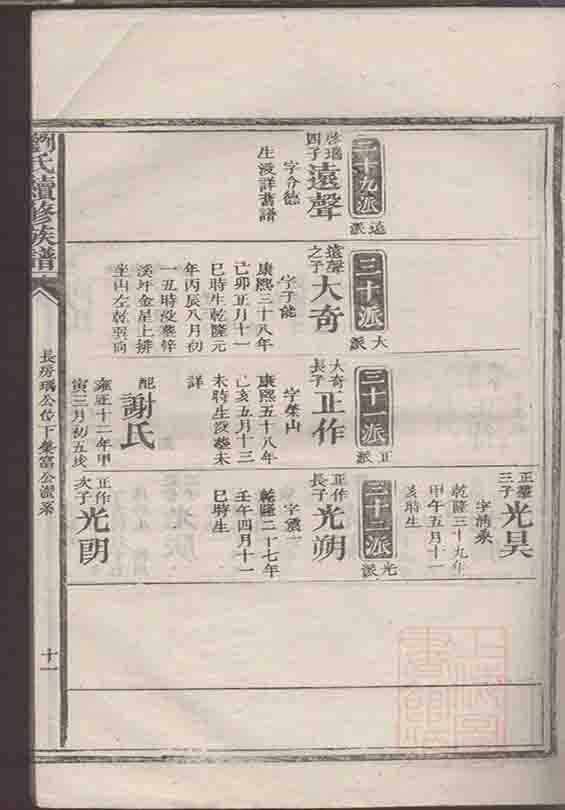 劉氏續修族譜
長房瑀公位下榮富公派系
十一
二十九派
遠派
啓瑞四子
遠聲
字介德
生沒詳舊譜
三十派
大派
遠聲之子
大奇
字子能
康熙三十八年
己卯正月十一
巳時生乾隆元
年丙辰八月初
一丑時沒葬鋅
溪坪金星上排
坐山左乾巽向
三十一派
正派
大奇長子
正作
字榮山
康熙五十八年
己亥五月十三
未時生沒葬未
詳
配
謝氏
雍正十二年甲
寅三月初五戌
正羣三子
光昊
字滿乘
乾隆三十九年
甲午五月十一
亥時生
三十二派
光派
正作長子
光朔
字震一
乾隆二十七年
壬午四月十一
巳時生
正作次子
光明